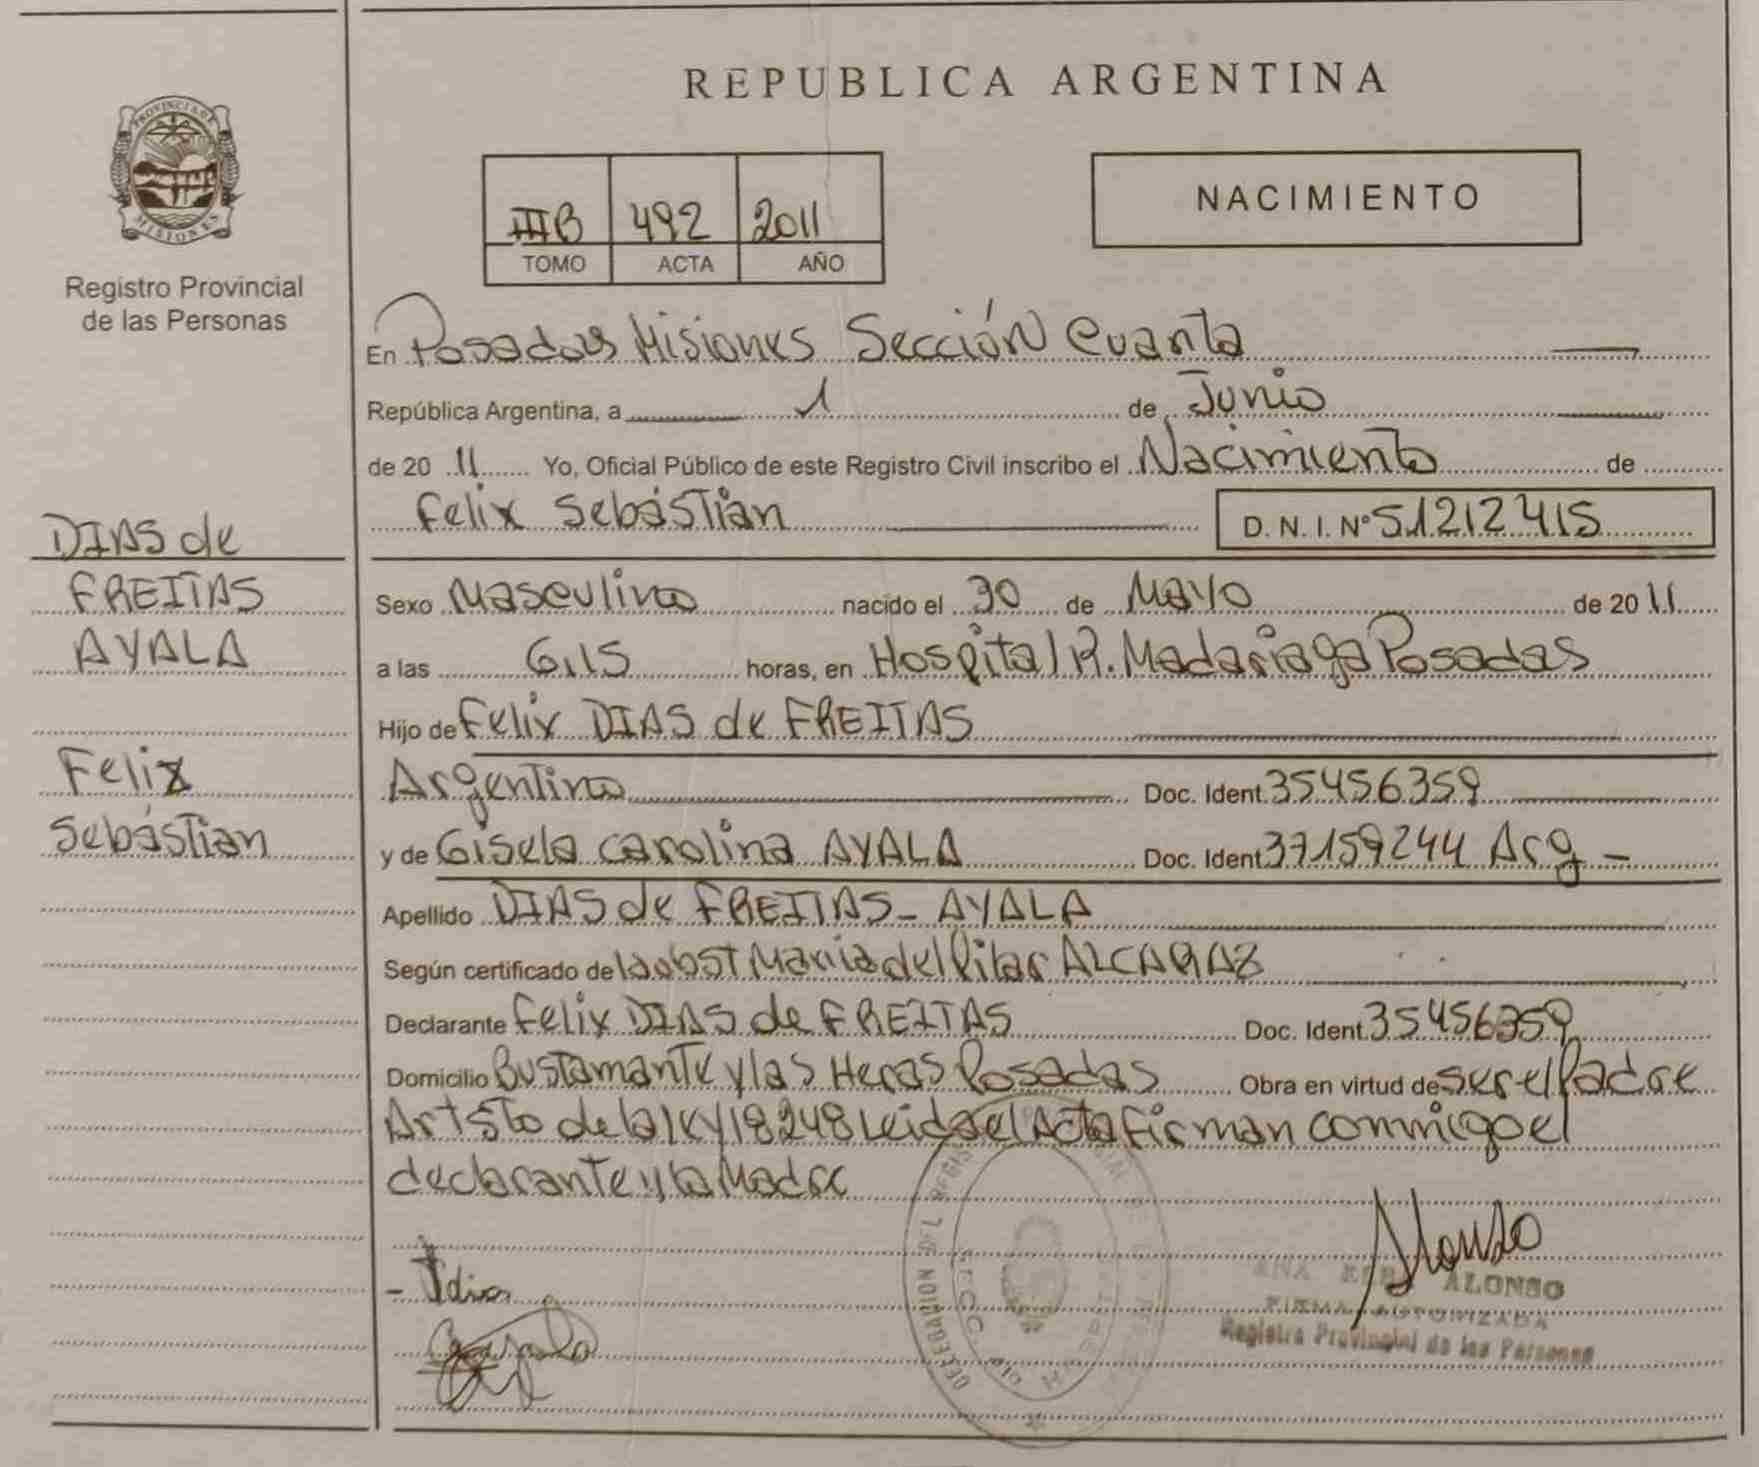 PROVINCIA DE
MISIONES
Registro Provincial
de las Personas
DIAS de
FREITAS
AYALA
Felix
Sebástian
REPUBLICA ARGENTINA
IIIB 492 2011
TOMO ACTA AÑO
NACIMIENTO
En Posadas Misiones Sección Cuarta
República Argentina, a 1 de Junio
de 20 11 Yo, Oficial Público de este Registro Civil inscribo el Nacimiento de
Felix Sebástian D. N. I. Nº 51212415
Sexo Masculino nacido el 30 de Mayo de 20 11
a las 6,15 horas, en Hospital R. Madariaga Posadas
Hijo de Felix DIAS de FREITAS
Argentino Doc. Ident. 35456359
y de Gisela Carolina AYALA Doc. Ident. 37159244 Arg -
Apellido DIAS de FREITAS - AYALA
Según certificado de la obst Maria del Pilar ALCARAZ
Declarante Felix DIAS de FREITAS Doc. Ident. 35456359
Domicilio Bustamante y las Heras Posadas Obra en virtud de ser el Padre
Art 5to de la ley 18248 Leida el Acta firman conmigo el
declarante y la Madre
ALONSO
FIRMA AUTORIZADA
Registro Provincial de las Personas